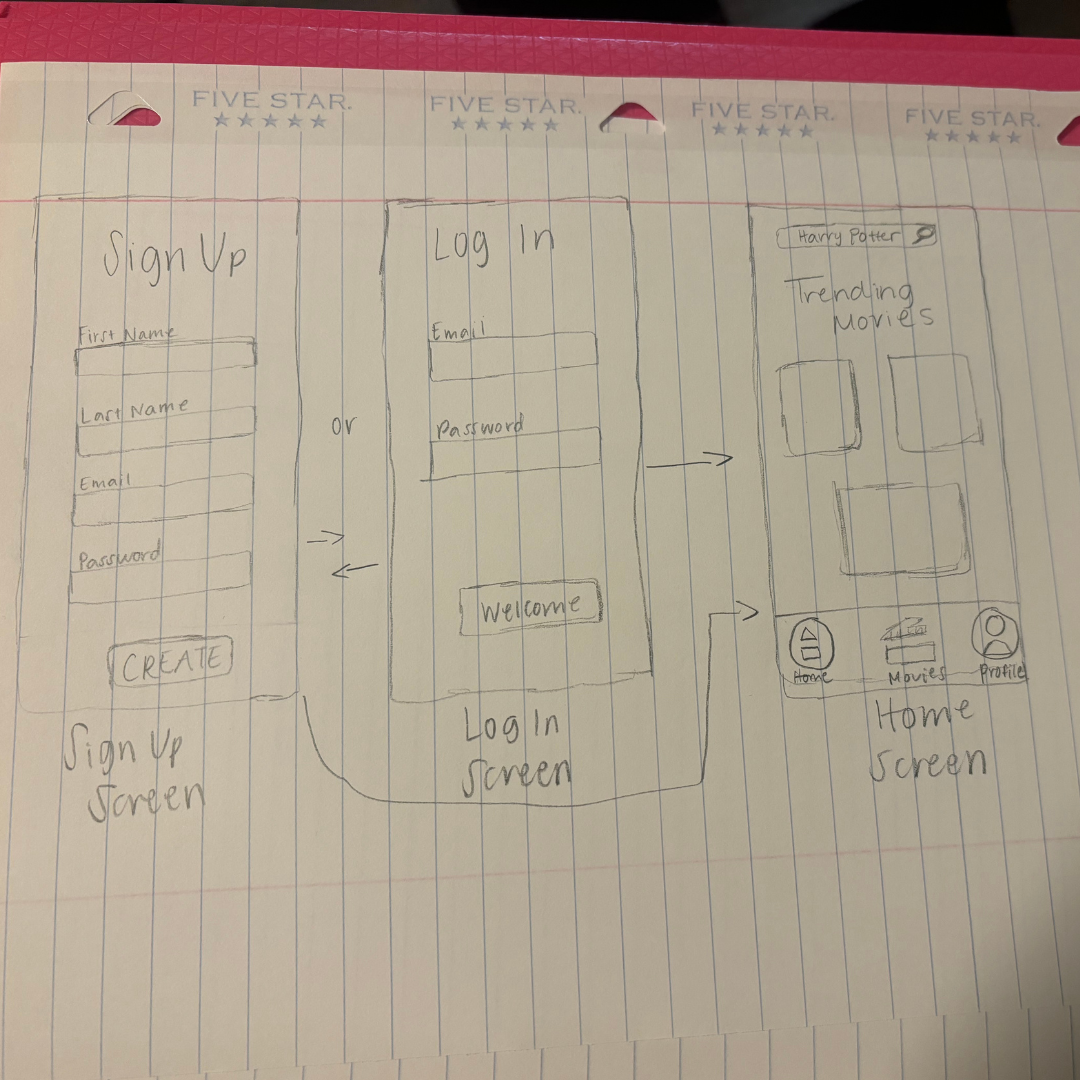 FIVE STAR.
FIVE STAR.
FIVE STAR.
FIVE STAR.
Sign Up
First Name
Last Name
Email
Password
CREATE
Sign Up
Screen
or
Log In
Email
Password
Welcome
Log In
Screen
Harry Potter
Trending
Movies
Home
Movies
Profile
Home
Screen